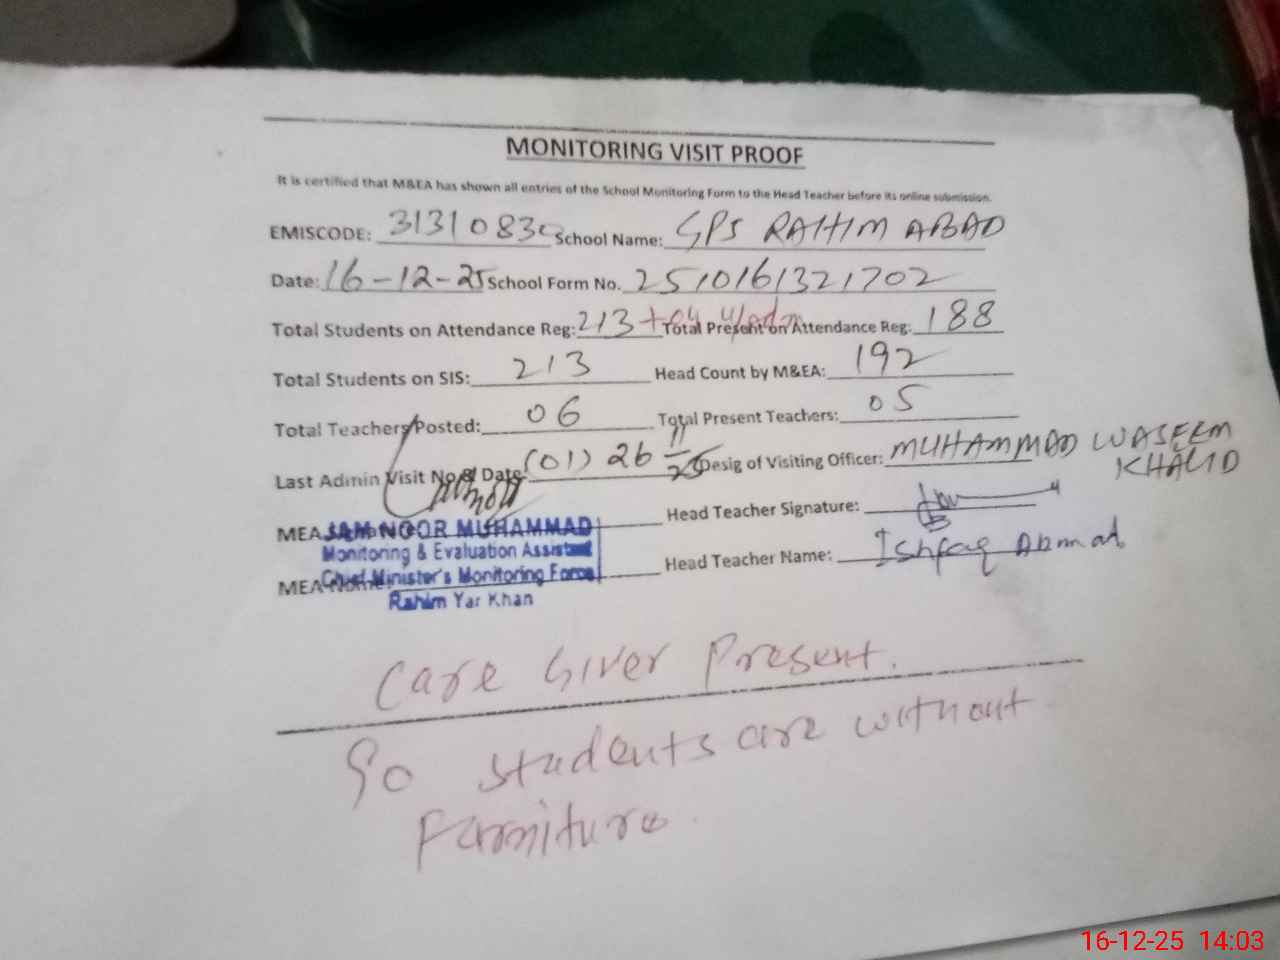 MONITORING VISIT PROOF
It is certified that M&EA has shown all entries of the School Monitoring Form to the Head Teacher before its online submission.
EMISCODE: 31310830 School Name: GPS RAHIM ABAD
Date: 16-12-25 School Form No. 2510161321702
Total Students on Attendance Reg: 213 +04 Total Present on Attendance Reg: 188
Total Students on SIS: 213 Head Count by M&EA: 192
Total Teachers Posted: 06 Total Present Teachers: 05
Last Admin Visit No & Date: (01) 26 11 25 Desig of Visiting Officer: MUHAMMAD WASEEM
KHALID
MEA Head Teacher Signature:
JAM NOOR MUHAMMAD
Monitoring & Evaluation Assistant
Head Teacher Name: Ishfaq Ahmad
MEA Name:
Chief Minister's Monitoring Force
Rahim Yar Khan
Care Giver Present.
students are without
Furniture.
16-12-25 14:03